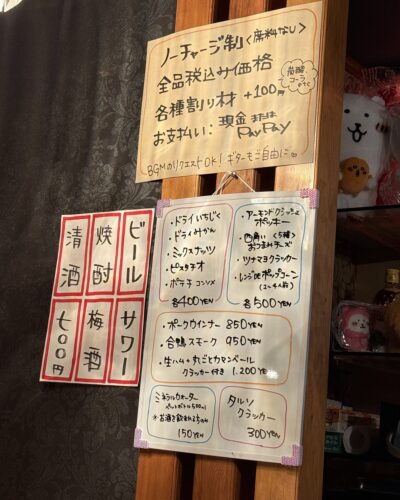 ノーチャージ制〈席料なし〉
全品税込み価格
各種割り材 +100円
炭酸
コーラ
etc
お支払い：現金 または
PayPay
BGMのリクエストOK！ギターもご自由に
ビール
焼酎
清酒
サワー
梅酒
七〇〇円
・ドライいちじく
・ドライみかん
・ミックスナッツ
・ピスタチオ
・ポテチ コンソメ
各400YEN
・アーモンドクラッシュ
ポッキー
・四角い〈5種〉
おつまみチーズ
・ツナマヨクラッカー
・レンジdeポップコーン
(2〜4人前)
各500YEN
・ポークウインナー 850YEN
・合鴨スモーク 950YEN
・生ハム＋丸ごとカマンベール
クラッカー付き 1.200YEN
ミネラルウォーター
ペットボトル500ml
※お酒を飲まれる方のみ
150YEN
タルソ
クラッカー
300YEN